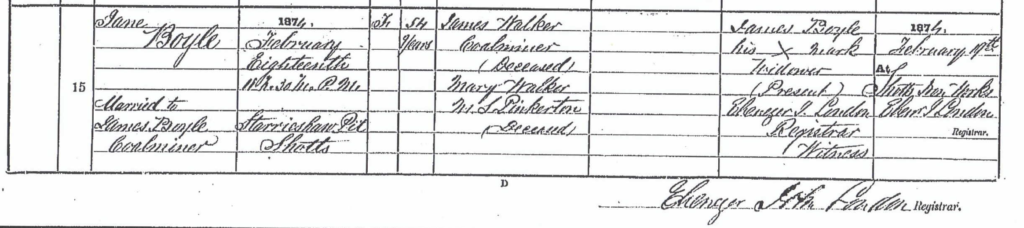 15
Jane
Boyle
Married to
James Boyle
Coalminer
1874.
February
Eighteenth
11 h. 30 m. P.M.
Starrieshaw Pit
Shotts
F.
54
Years
James Walker
Coalminer
(Deceased)
Mary Walker
M. S. Pinkerton
(Deceased)
James Boyle
his X mark
Widower
(Present)
Ebenezer J. London
Registrar
Witness
1874.
February 19th
At
Shotts Iron Works
Eben. J. London
Registrar.
D
Ebenezer John London Registrar.